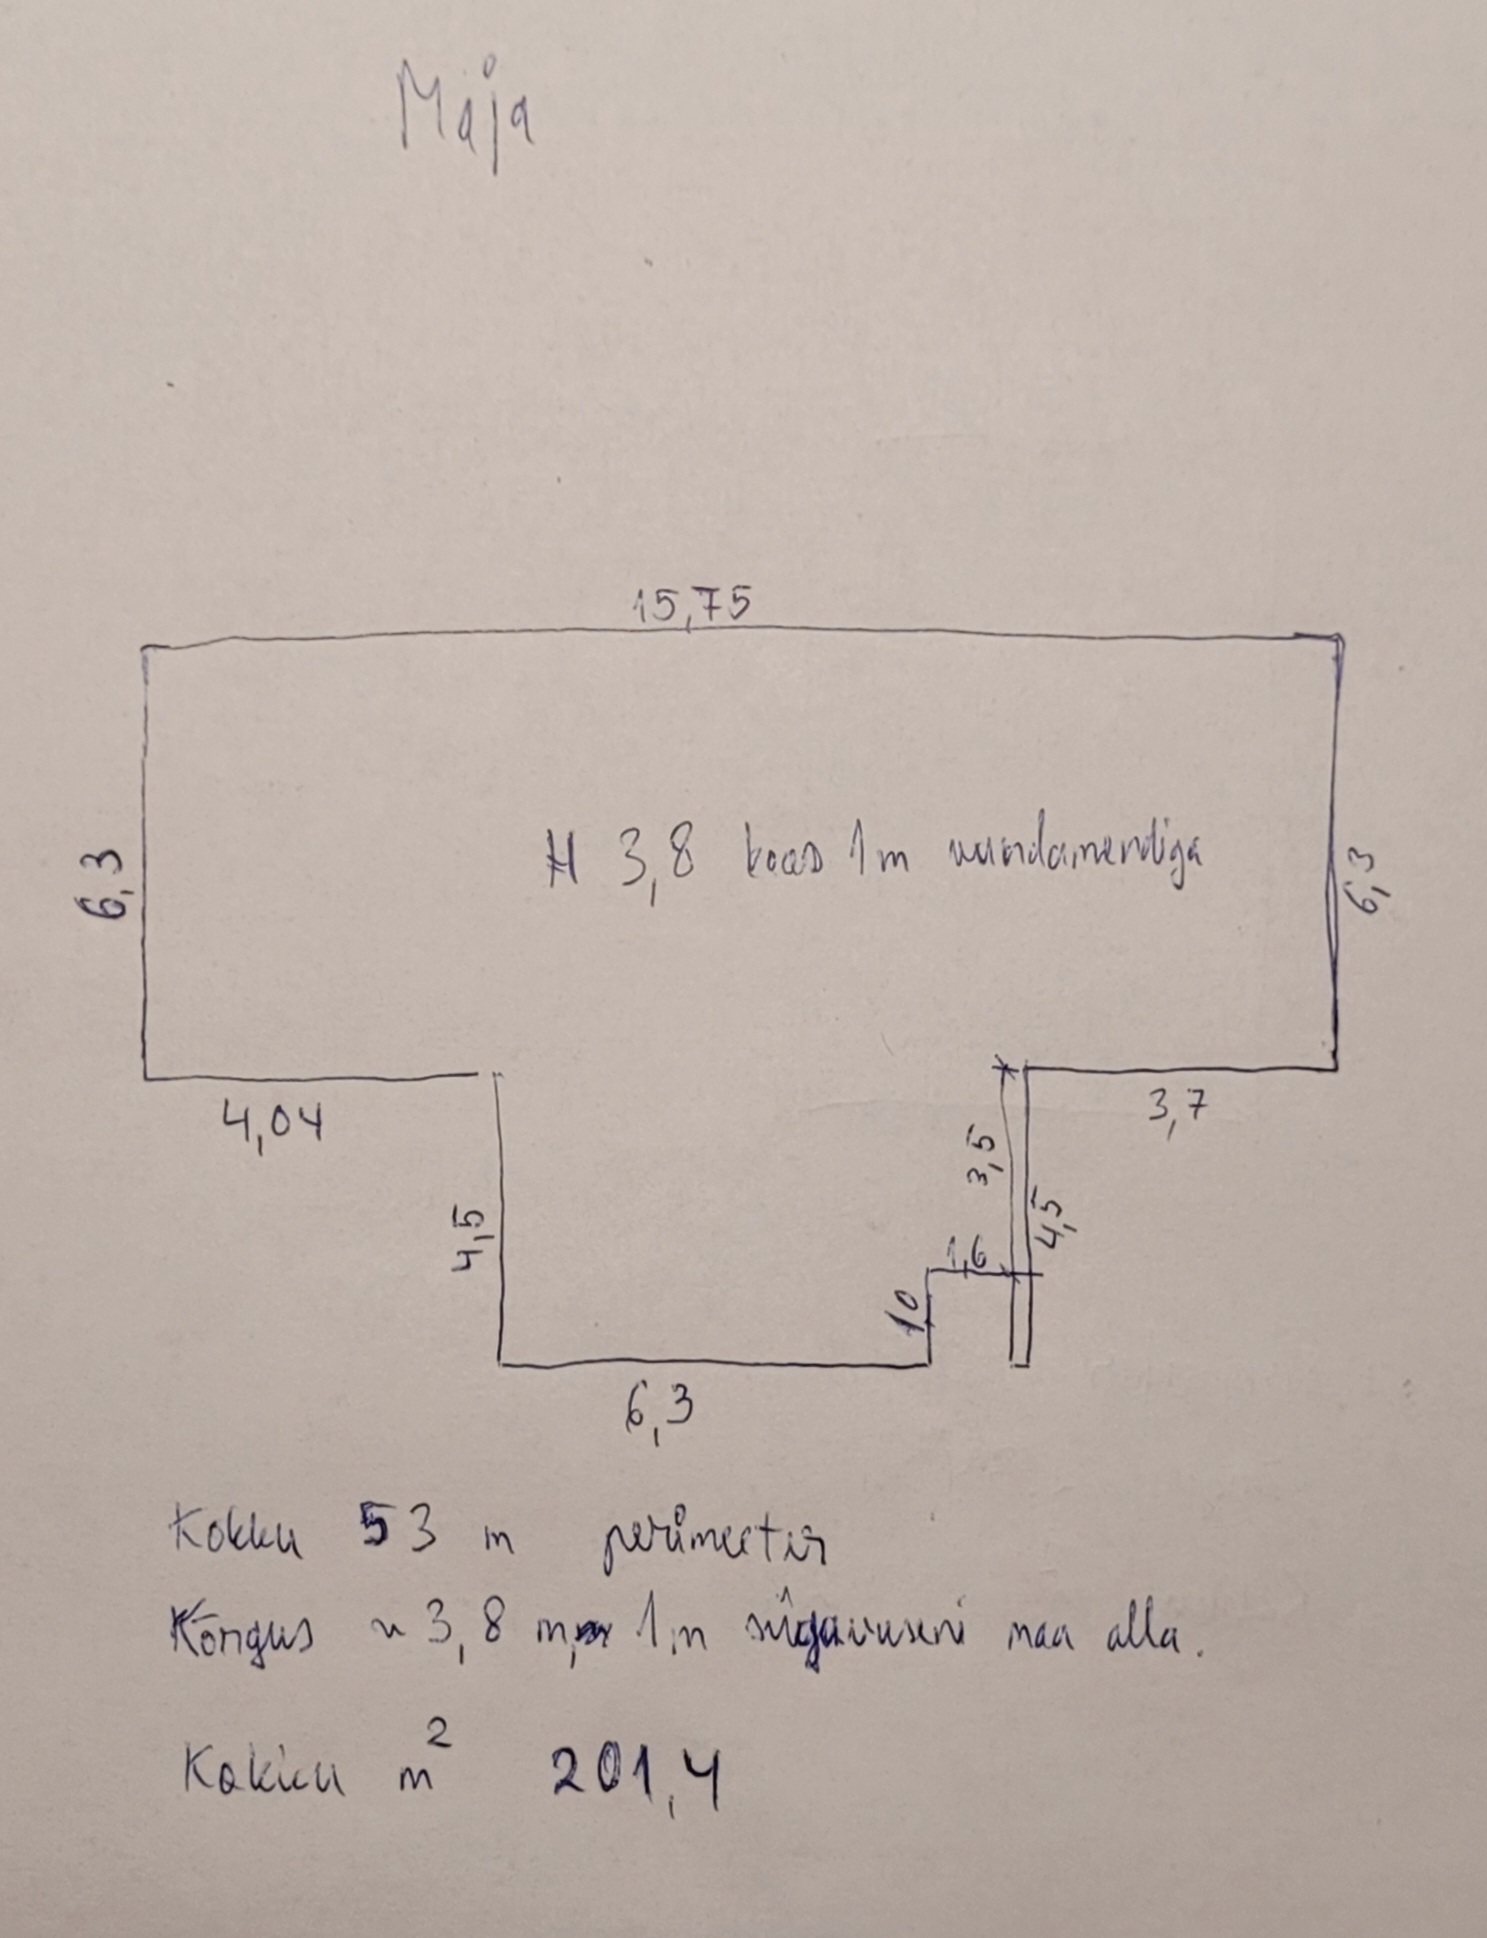 Maja
15,75
6,3
H 3,8 koos 1m vundamendiga
6,3
4,04
3,7
3,5
4,5
4,5
1,6
10
6,3
Kokku 53 m perimeeter
Kõrgus ~ 3,8 m, 1m sügavuseni maa alla.
Kokku m² 201,4